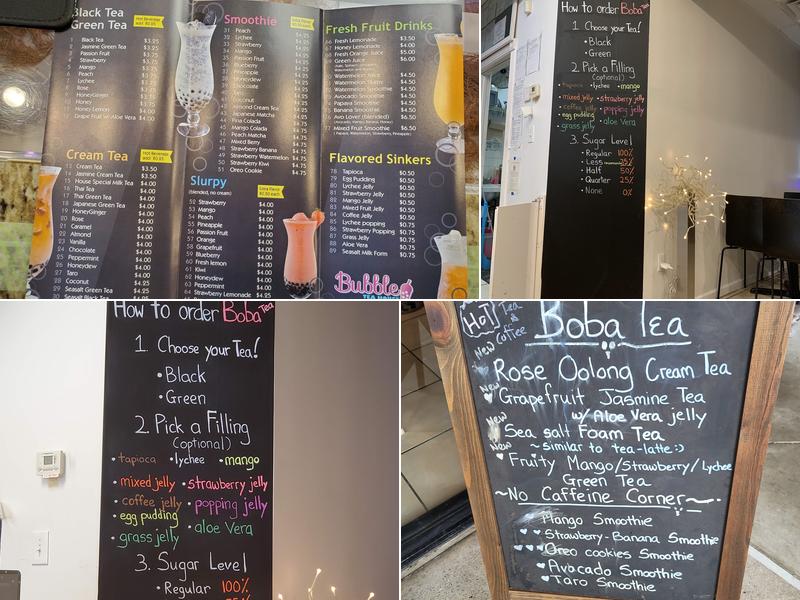 Black Tea
Green Tea
Hot Beverage
add $0.25
1 Black Tea $3.25
2 Jasmine Green Tea $3.25
3 Passion Fruit
4 Strawberry
5 Mango
6 Peach
7 Lychee
8 Rose
9 HoneyGinger
10 Honey
11 Honey Lemon $4.00
12 Grape Fruit w/ Aloe Vera $4.00
Cream Tea
Hot Beverage
add $0.25
13 Cream Tea $3.50
14 Jasmine Cream Tea $3.50
15 House Special Milk Tea $4.00
16 Thai Tea $4.00
17 Thai Green Tea $4.00
18 Japanese Matcha $4.00
19 HoneyGinger $4.00
20 Rose $4.00
21 Caramel $4.00
22 Almond $4.00
23 Vanilla $4.00
24 Chocolate $4.00
25 Peppermint $4.00
26 Honeydew $4.00
27 Taro $4.00
28 Coconut $4.25
29 Seasalt Green Tea
30 Seasalt Black Tea
Smoothie
31 Peach
32 Lychee
33 Strawberry
34 Mango
35 Passion Fruit
36 Blueberry
37 Pineapple
38 Honeydew
39 Chocolate
40 Taro
41 Coconut
42 Almond Cream Tea
43 Japanese Matcha
44 Pina Colada
45 Mango Colada
46 Peach Matcha
47 Mixed Berry
48 Strawberry Banana $4.75
49 Strawberry Watermelon $4.75
50 Strawberry Kiwi $4.75
51 Oreo Cookie $4.75
Slurpy
(blended, no cream)
Extra Flavor
$0.50 each
52 Strawberry $4.00
53 Mango $4.00
54 Peach $4.00
55 Pineapple $4.00
56 Passion Fruit $4.00
57 Orange $4.00
58 Grapefruit $4.00
59 Blueberry $4.00
60 Fresh lemon $4.00
61 Kiwi $4.00
62 Honeydew $4.00
63 Peppermint $4.00
64 Strawberry Lemonade $4.25
Fresh Fruit Drinks
66 Fresh Lemonade $3.50
67 Honey Lemonade $4.00
68 Fresh Orange Juice $5.00
69 Green Juice $6.00
Watermelon Juice $4.50
Watermelon Slurpy $4.50
Watermelon Smoothie $4.50
Avocado Smoothie $4.50
Papaya Smoothie $4.50
Banana Smoothie $4.50
Avo Lover (blended) $6.50
(Avocado, Mango, Banana, Honey)
77 Mixed Fruit Smoothie $6.50
(Papaya, Watermelon, Strawberry, Pineapple)
Flavored Sinkers
78 Tapioca $0.50
79 Egg Pudding $0.50
80 Lychee Jelly $0.50
81 Strawberry Jelly $0.50
82 Mango Jelly $0.50
83 Mixed Fruit Jelly $0.50
84 Coffee Jelly $0.50
85 Lychee popping $0.75
86 Strawberry Popping $0.75
87 Grass Jelly $0.75
88 Aloe Vera $0.75
89 Seasalt Milk Form $0.75
Bubble
TEA HOUSE
How to order Boba Tea
1 Choose your Tea!
• Black
Green
2. Pick a Filling
(optional)
• tapioca • lychee • mango
mixed jelly • strawberry jelly
• coffee jelly • popping jelly
egg pudding
• grass jelly • aloe Vera
3. Sugar Level
• Regular 100%
• Less 75%
• Half 50%
• Quarter 25%
• None 0%
How to order Boba Tea
1. Choose your Tea!
• Black
• Green
2. Pick a Filling
(optional)
• tapioca • lychee • mango
• mixed jelly • strawberry jelly
• coffee jelly • popping jelly
• egg pudding
• grass jelly • aloe Vera
3. Sugar Level
• Regular 100%
75%
HOT Tea & Coffee
Boba Tea
New Rose Oolong Cream Tea
New Grapefruit Jasmine Tea
w/ Aloe Vera jelly
New Sea salt Foam Tea
~ similar to tea-latte :)
New Fruity Mango/Strawberry/Lychee
Green Tea
~No Caffeine Corner~
Mango Smoothie
Strawberry-Banana Smoothie
Oreo cookies Smoothie
Avocado Smoothie
Taro Smoothie